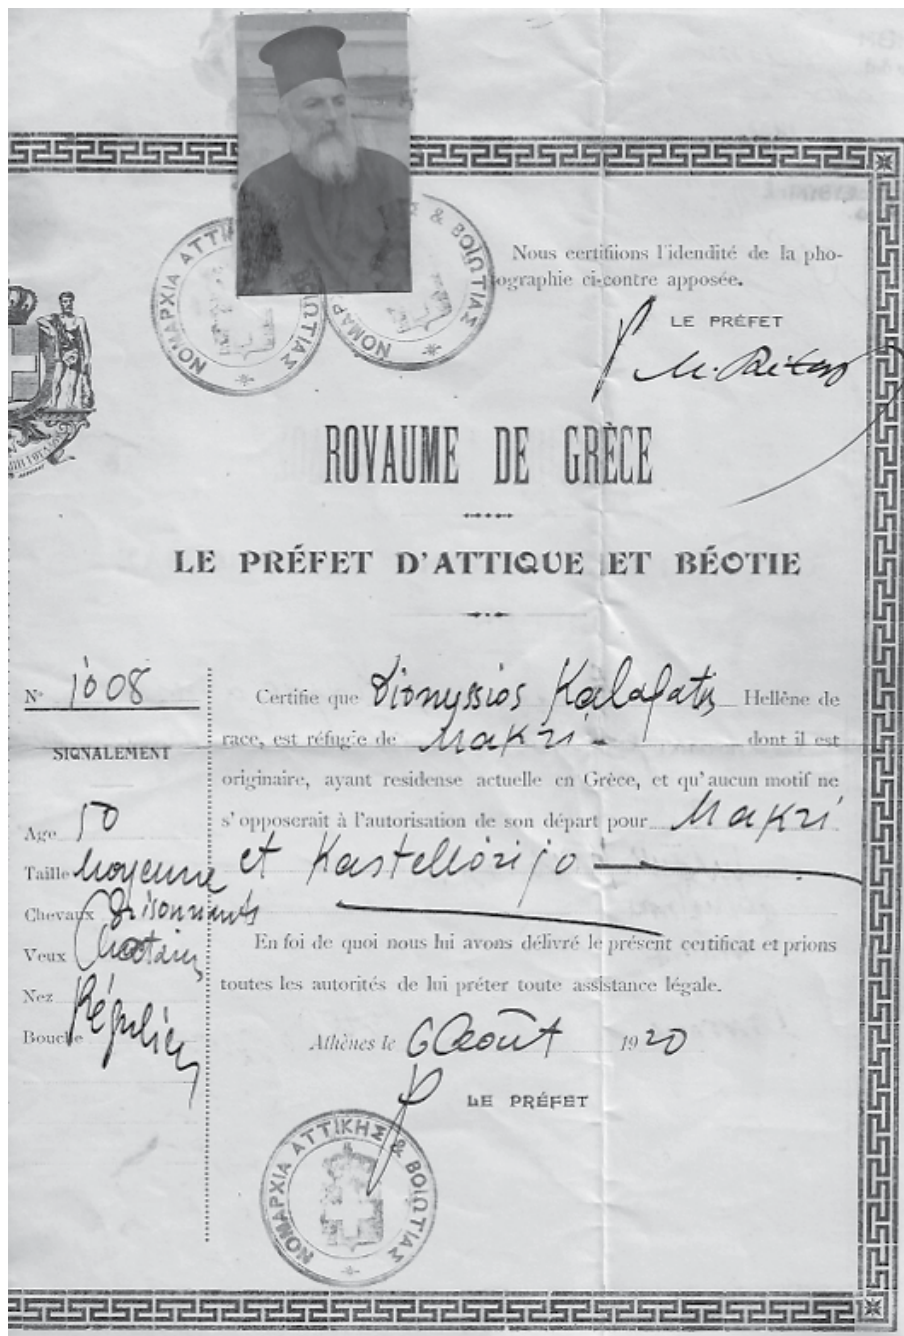 ΝΟΜΑΡΧΙΑ ΑΤΤΙΚ ΒΟΙΩΤΙΑΣ
ΝΟΜΑΡ Σ & ΒΟΙΩΤΙΑΣ
Nous certifiions l'idendité de la pho-
tographie ci-contre apposée.
LE PRÉFET
ROYAUME DE GRÈCE
LE PRÉFET D'ATTIQUE ET BÉOTIE
N° 1008
SIGNALEMENT
Age 50
Taille Moyenne
Chevaux Grisonnants
Yeux Chatains
Nez Régulier
Bouche
Certifie que Dionyssios Kalafatis Hellène de
race, est réfugie de Makri dont il est
originaire, ayant residense actuelle en Grèce, et qu'aucun motif ne
s'opposerait à l'autorisation de son départ pour Makri
et Kastellorijo
En foi de quoi nous lui avons délivré le présent certificat et prions
toutes les autorités de lui préter toute assistance légale.
Athènes le 6 Août 1920
LE PRÉFET
ΝΟΜΑΡΧΙΑ ΑΤΤΙΚΗΣ & ΒΟΙΩΤΙΑΣ